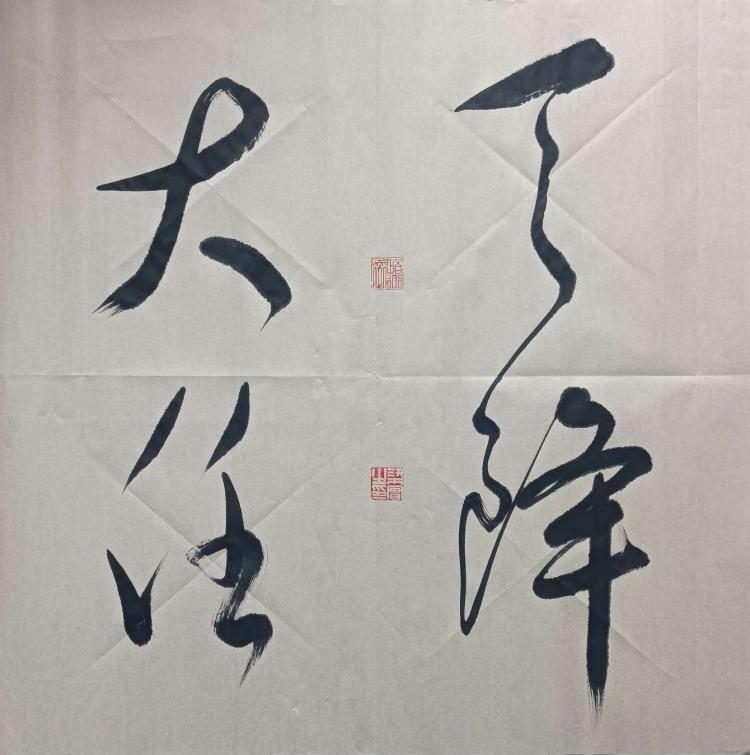 天降
大任